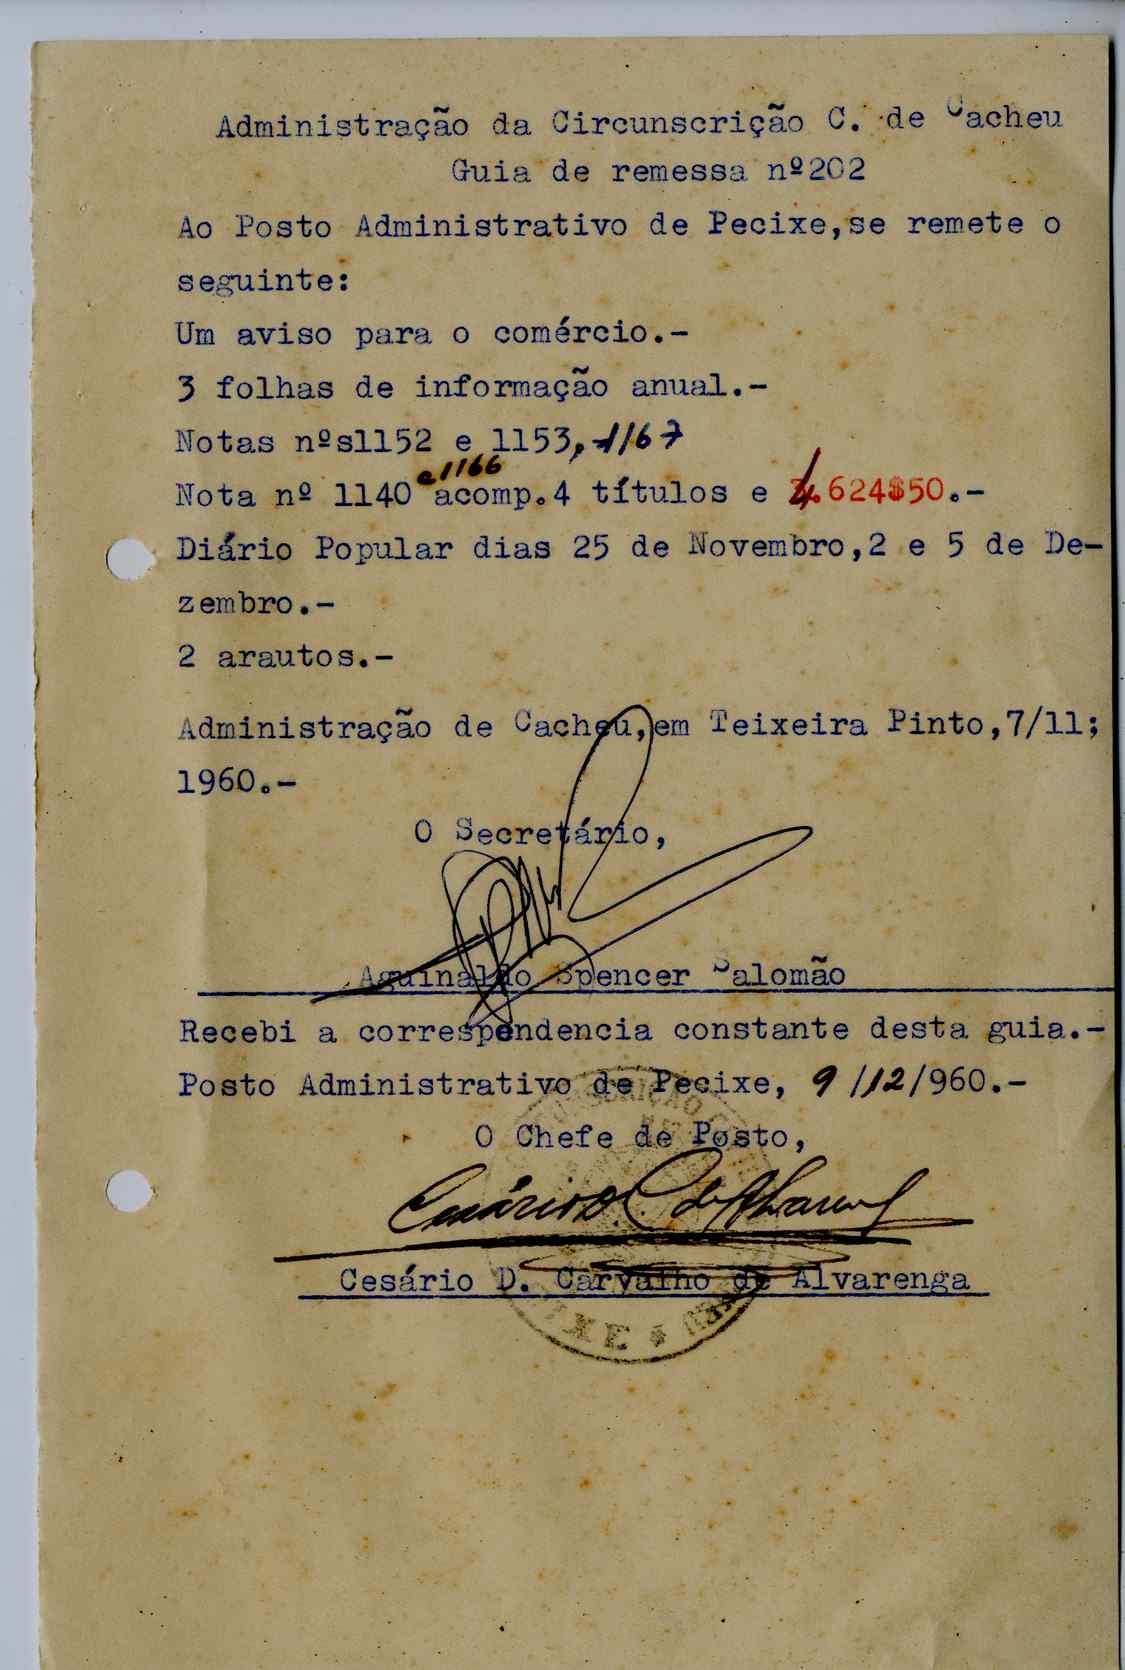 Administração da Circunscrição C. de Cacheu
Guia de remessa nº202
Ao Posto Administrativo de Pecixe,se remete o
seguinte:
Um aviso para o comércio.-
3 folhas de informação anual.-
Notas nºs1152 e 1153,-1167
e 1166
Nota nº 1140 acomp.4 títulos e 4.624$50.-
Diário Popular dias 25 de Novembro,2 e 5 de De-
zembro.-
2 arautos.-
Administração de Cacheu,em Teixeira Pinto,7/11;
1960.-
O Secretário,
Aguinaldo Spencer Salomão
Recebi a correspondencia constante desta guia.-
Posto Administrativo de Pecixe, 9/12/960.-
O Chefe de Posto,
Cesário D. C. de Alvarenga
Cesário D. Carvalho de Alvarenga